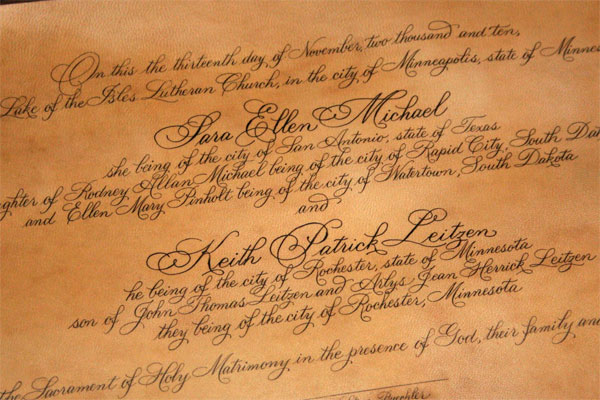 On this the thirteenth day, of November, two thousand and ten,
Lake of the Isles Lutheran Church, in the city of Minneapolis, state of Minnes
Sara Ellen Michael
she being of the city of San Antonio, state of Texas
ghter of Rodney Allan Michael being of the city of Rapid City, South Dak
and Ellen Mary Pinholt being of the city of Watertown, South Dakota
and
Keith Patrick Leitzen
he being of the city of Rochester, state of Minnesota
son of John Thomas Leitzen and Arlys Jean Herrick Leitzen
they being of the city of Rochester, Minnesota
the Sacrament of Holy Matrimony in the presence of God, their family and